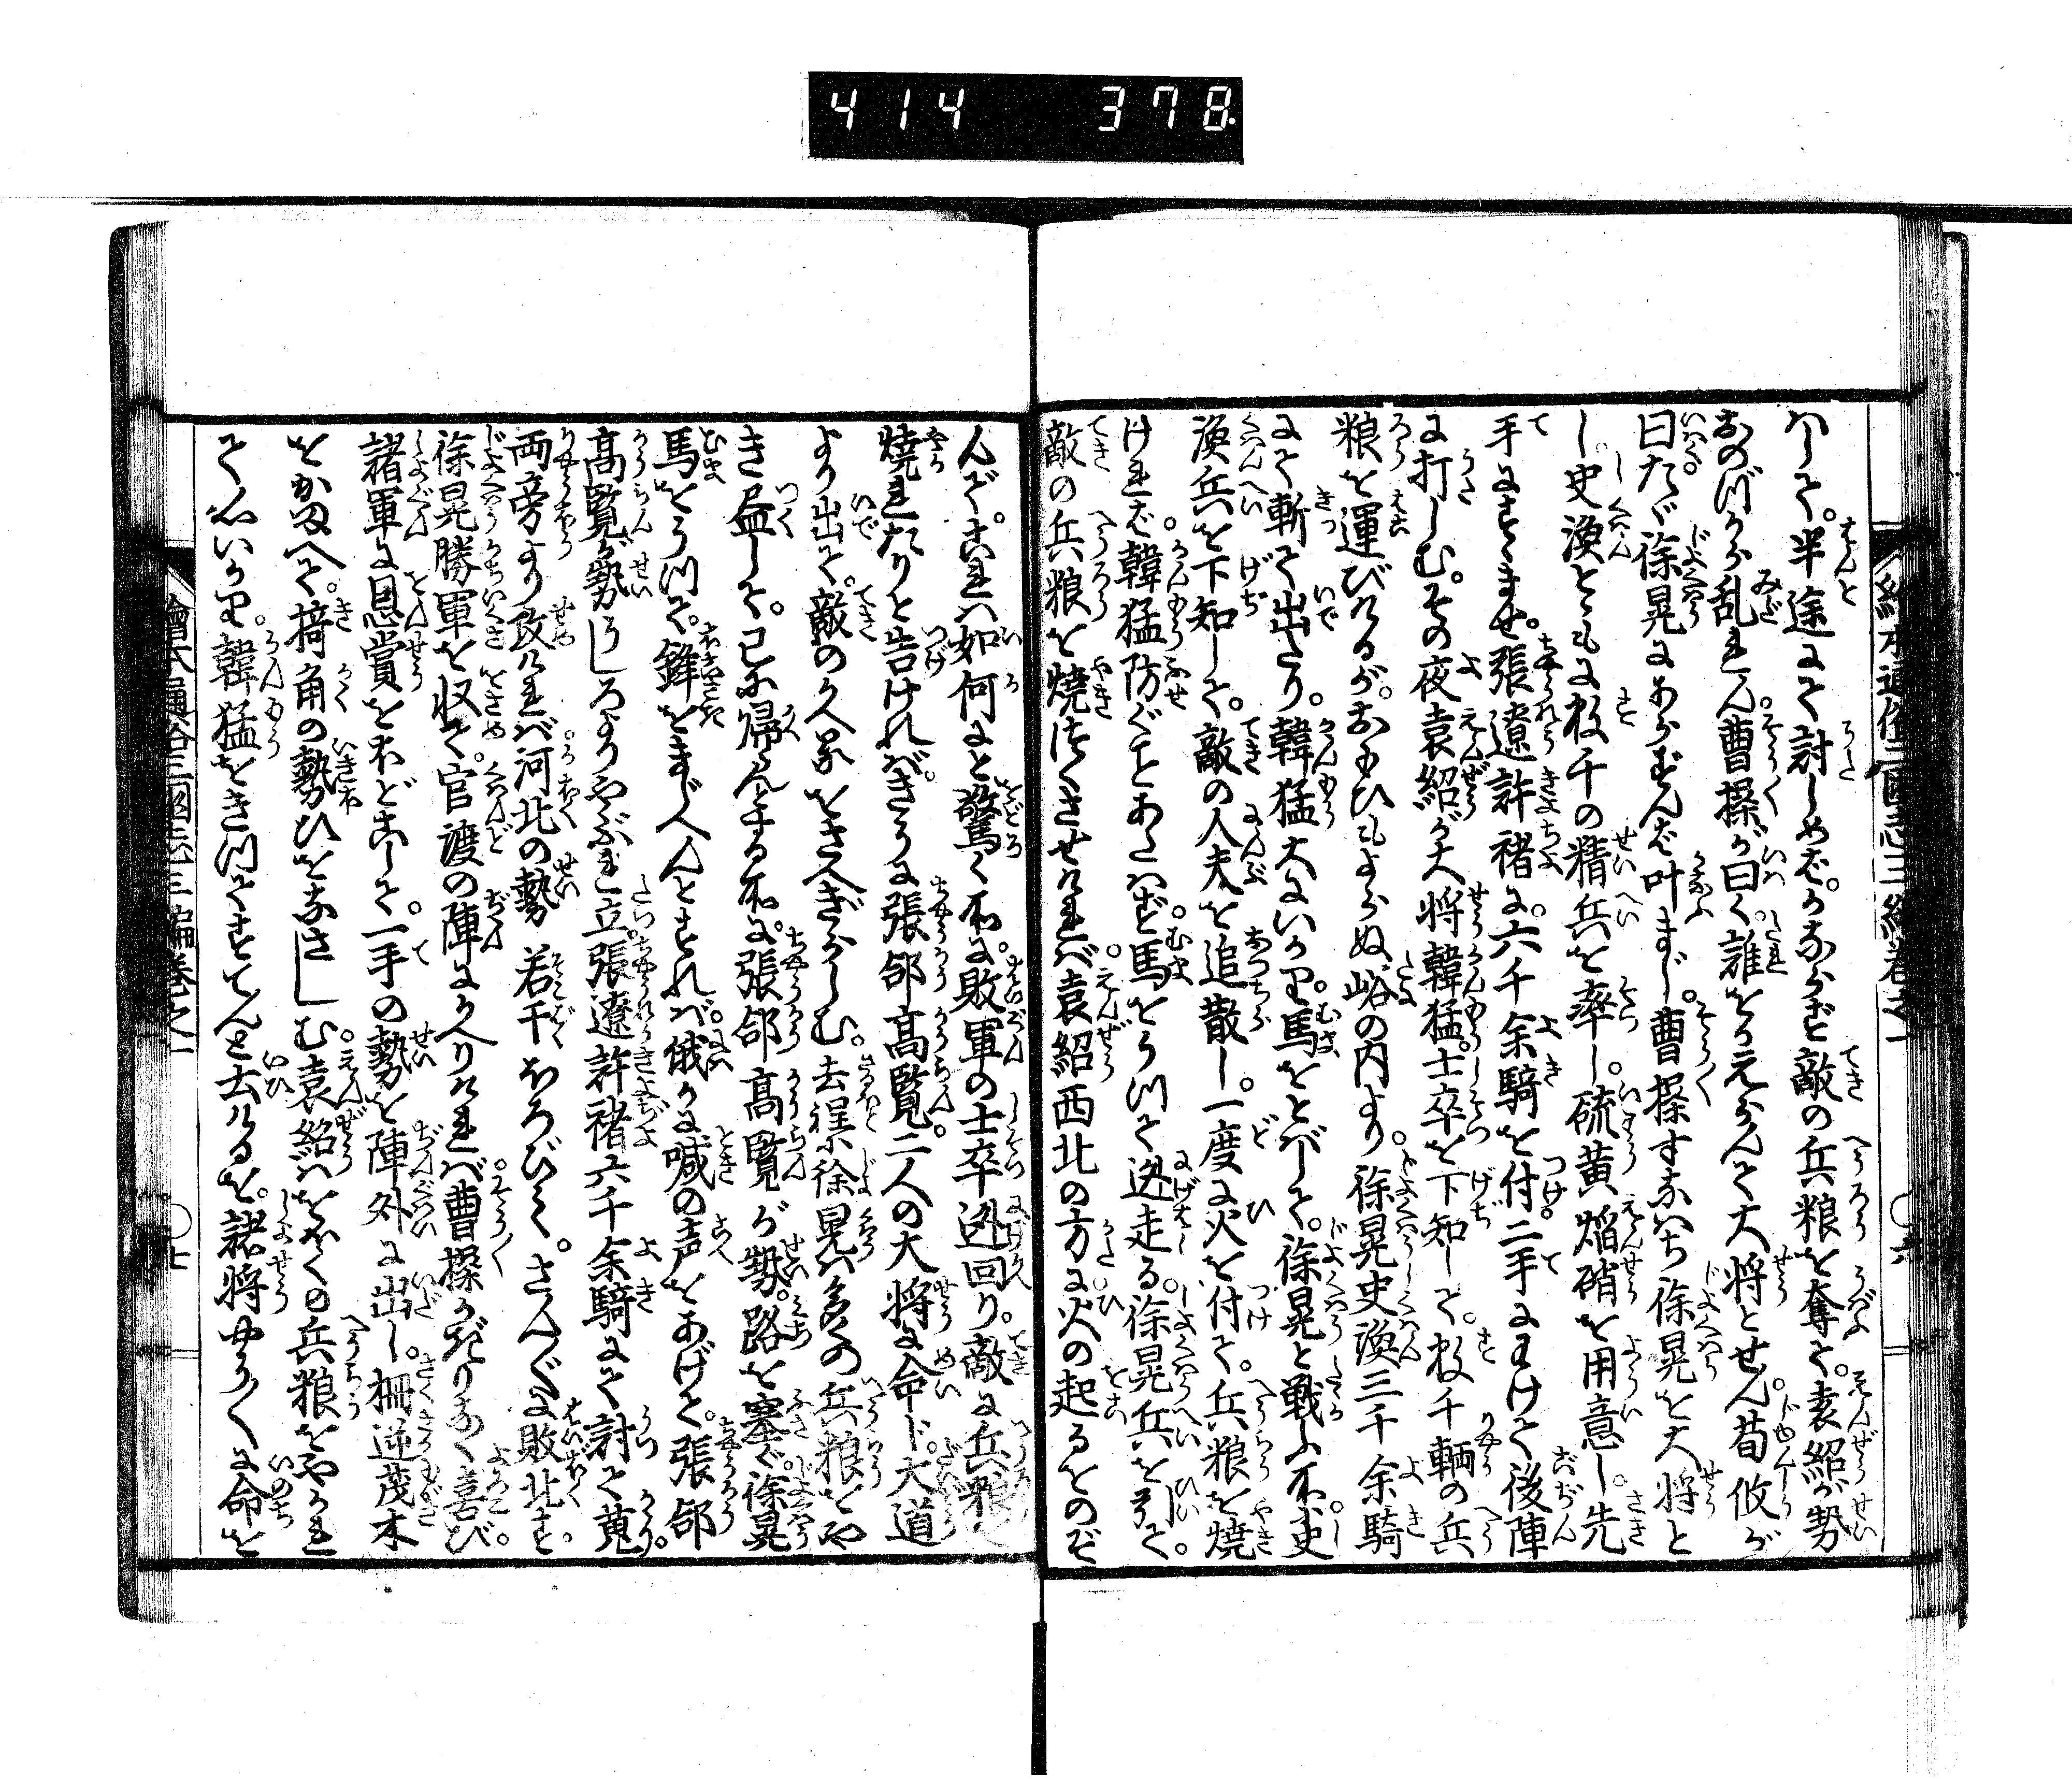 414 378
はして。半途にて討しめば。かならず敵の兵粮を奪て。袁紹が勢
おのづから乱れん。曹操が曰く誰をか元なんて大将とせん。荀攸が
曰たゞ徐晃にあらずんば叶まじ。曹操すなはち徐晃を大将と
し。史渙ともに数千の精兵を率し。硫黄焔硝を用意し。先
手にすゝませ。張遼許褚に。六千余騎を付。二手にわけて後陣
に打しむ。その夜袁紹が大将韓猛。士卒を下知して。数千輌の兵
粮を運びけるが。おもひもよらぬ峪の内より。徐晃史渙三千余騎
にて斬て出たり。韓猛大にいかり。馬をとばして。徐晃と戦ふ所。史
渙兵を下知して。敵の人夫を追散し。一度に火を付て。兵粮を焼
ければ。韓猛防ぐことあたはず。馬をうつて迯走る。徐晃兵を引て。
敵の兵粮を焼つくさせければ。袁紹西北の方に火の起るをのぞ
んで。これは如何にと驚く所に。敗軍の士卒迯回り。敵に兵粮を
焼れたりと告ければ。きうに張郃高覧。二人の大将に命ド。大道
より出て。敵の帰るをさへぎらしむ。去程に徐晃は多くの兵粮をや
き尽して。已に帰んとする所に。張郃高覧が勢。路を塞ぐ。徐晃
馬をうつて。鋒をまじへんとすれば。俄かに喊の声をあげて。張郃
高覧が勢うしろよりやぶれ立。張遼許褚六千余騎にて討て蒐り。
両旁より攻ければ。河北の勢若干ほろびて。さん〴〵に敗北す。
徐晃勝軍を収て。官渡の陣にかへりければ。曹操かぎりなく喜び。
諸軍に恩賞をほどこして。一手の勢を陣外に出し。柵逆茂木
をかまへて。掎角の勢ひをなさしむ。袁紹はをゝくの兵粮をやかれ
て心いかり。韓猛をきつてすてんと云けるを。諸将やう〳〵に命を